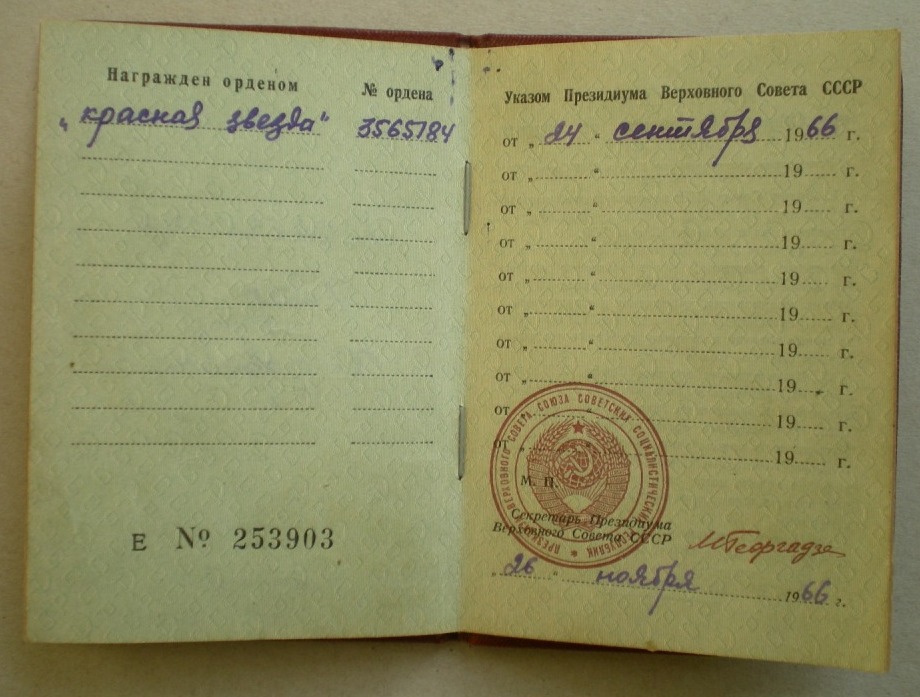 Награжден орденом
№ ордена
„красная звезда“
3565184
Е № 253903
Указом Президиума Верховного Совета СССР
от „24“ сентября 1966 г.
от „ “ 19 г.
от „ “ 19 г.
от „ “ 19 г.
от „ “ 19 г.
от „ “ 19 г.
от „ “ 19 г.
от „ “ 19 г.
от „ “ 19 г.
от „ “ 19 г.
ПРЕЗИДИУМ ВЕРХОВНОГО СОВЕТА СОЮЗА СОВЕТСКИХ СОЦИАЛИСТИЧЕСКИХ РЕСПУБЛИК
М. П.
Секретарь Президиума
Верховного Совета СССР
МГеоргадзе
„26“ ноября 1966 г.